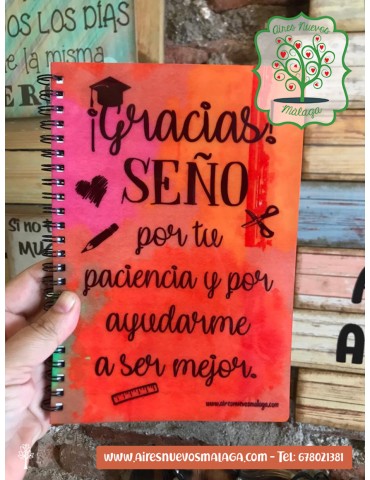 OS LOS DÍAS
la misma
Aires Nuevos
Málaga
¡Gracias!
SEÑO
por tu
paciencia y por
ayudarme
a ser mejor.
www.airesnuevosmalaga.com
Si no
A
A
WWW.AIRESNUEVOSMALAGA.COM - Tel: 678021381